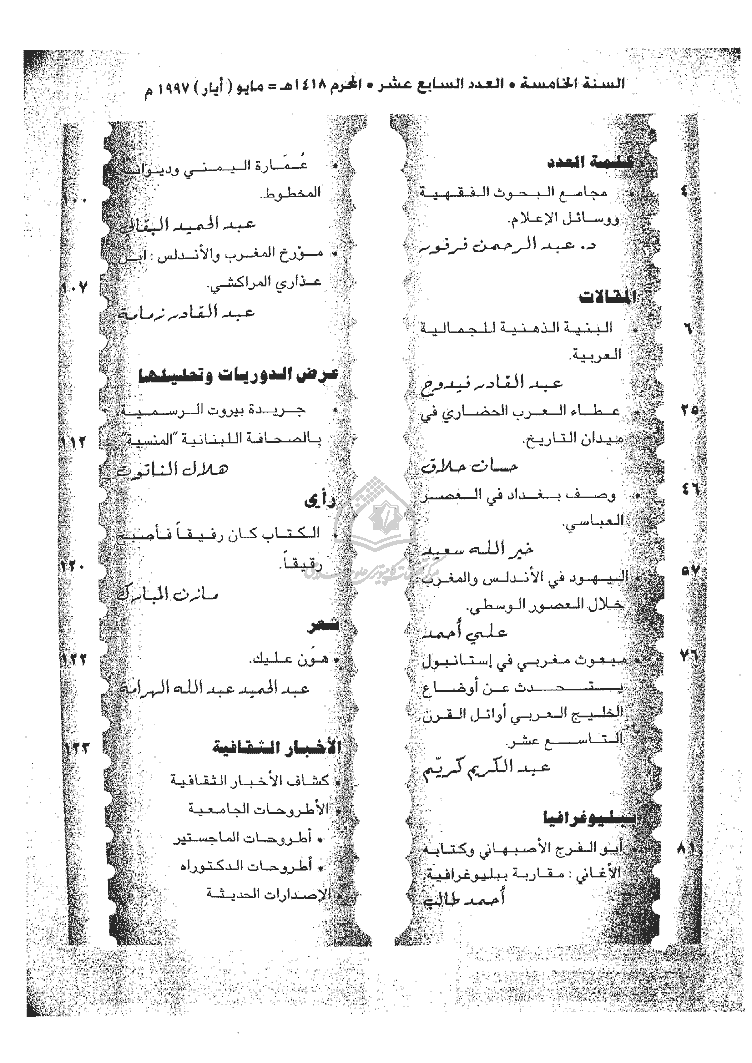 السنة الخامسة • العدد السابع عشر • المحرم ١٤١٨هـ = مايو ( أيار ) ١٩٩٧ م
كلمة العدد
• مجامع البحوث الفقهية ٤
ووسائل الإعلام.
د. عبد الرحمن فرفور
المقالات
• البنية الذهنية للجمالية ٦
العربية.
عبد القادر فيدوح
• عطاء العرب الحضاري في ٢٥
ميدان التاريخ.
حسان حلاق
• وصف بغداد في العصر ٤٦
العباسي.
خير الله سعيد
• اليهود في الأندلس والمغرب ٥٧
خلال العصور الوسطى.
علي أحمد
• مبعوث مغربي في إستانبول ٧٦
يتحدث عن أوضاع
الخليج العربي أوائل القرن
التاسع عشر.
عبد الكريم كريّم
ببليوغرافيا
• أبو الفرج الأصبهاني وكتابه ٨١
الأغاني : مقاربة ببليوغرافية.
أحمد طالب
• عُمَارة اليمني وديوانه
المخطوط. ١٠٠
عبد الحميد البقالي
• مؤرخ المغرب والأندلس : ابن
عذاري المراكشي. ١٠٧
عبد القادر زمامة
عرض الدوريات وتحليلها
• جريدة بيروت الرسمية
بالصحافة اللبنانية "المنسية" ١١٢
هلال الناتوت
رأي
• الكتاب كان رفيقاً فأصبح
رقيقاً. ١٢٠
مازن المبارك
شعر
• هوّن عليك. ١٢٢
عبد الحميد عبد الله الهرامة
الأخبار الثقافية ١٢٣
• كشاف الأخبار الثقافية
• الأطروحات الجامعية
• أطروحات الماجستير
• أطروحات الدكتوراه
• الإصدارات الحديثة